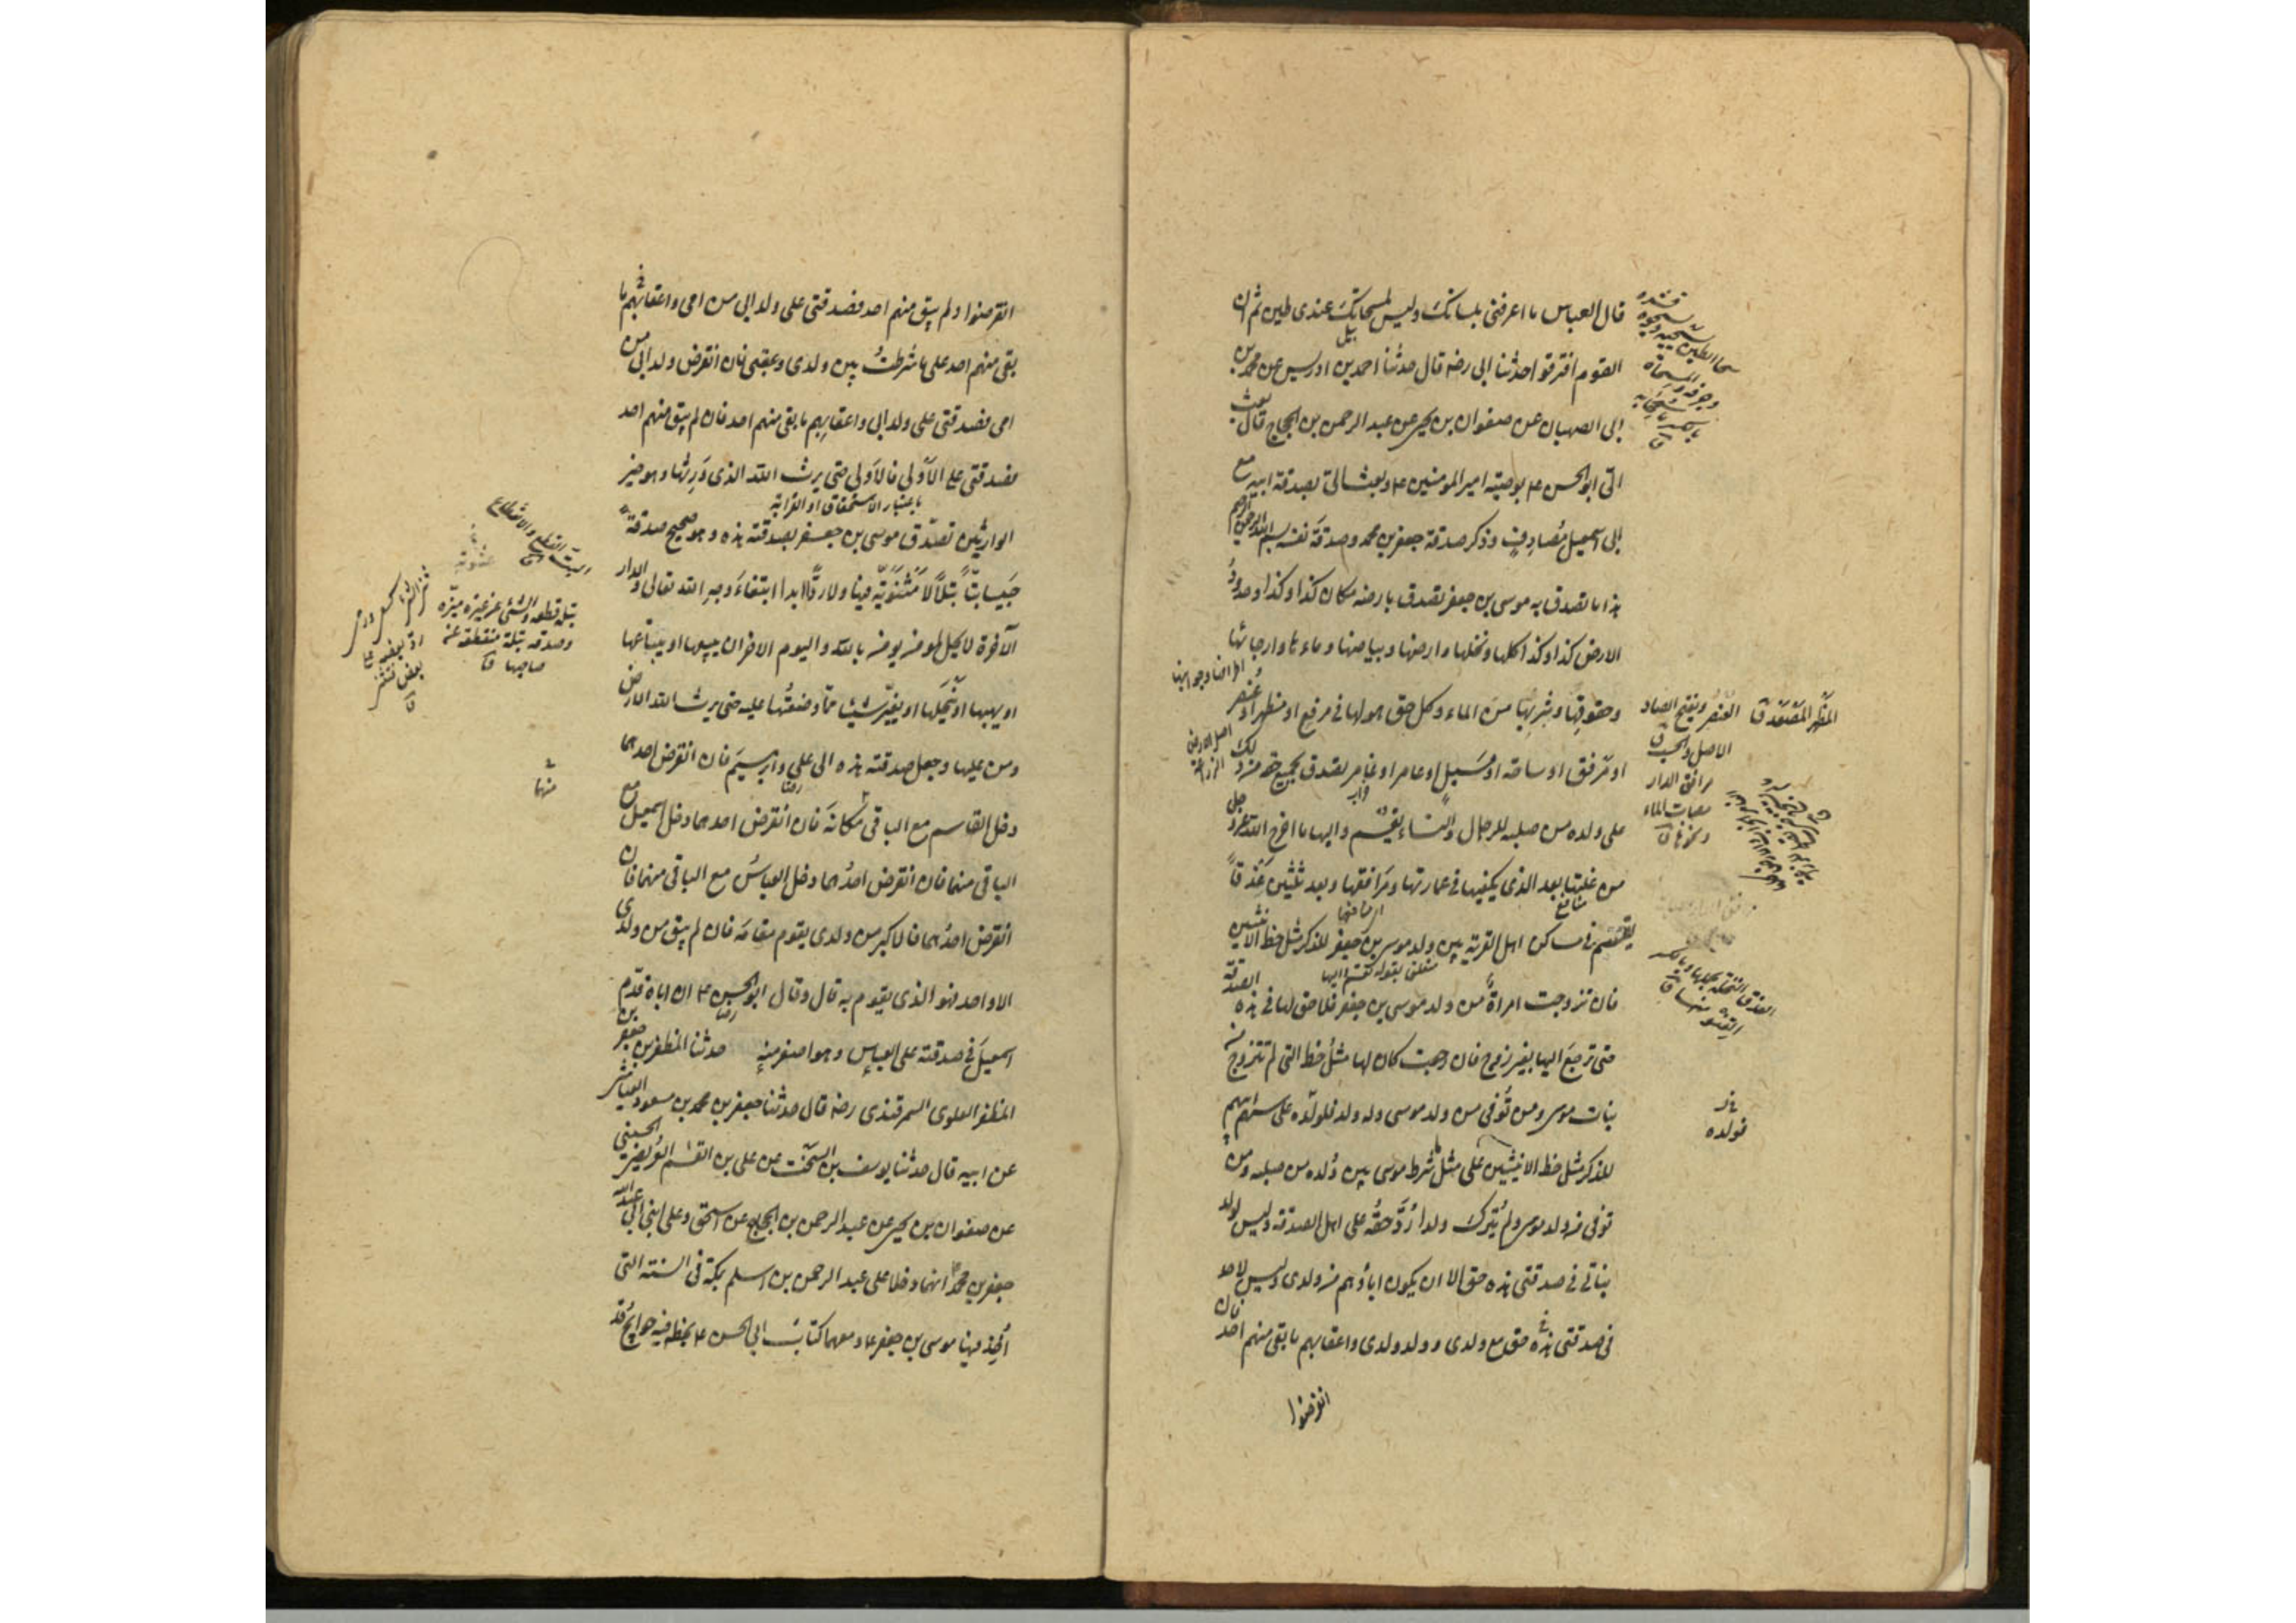 قال العباس ما اعرفنى بلسانك وليس لمسحاتك عندى طين ثم ان
القوم افترقوا حدثنا ابى رضه قال حدثنا احمد بن ادريس عن محمد بن
ابى الصهبان عن صفوان بن يحيى عن عبد الرحمن بن الحجاج قال بعث
الىّ ابو الحسن ع بوصية امير المومنين ع وبعث الىّ بصدقة ابيه مع
ابى اسمعيل مُصادِفٍ وذكر صدقة جعفر بن محمد وصدقة نفسه بسم الله الرحمن الرحيم
هذا ما تصدق به موسى بن جعفر تصدق بارضه مكان كذا وكذا وحدودُ
الارض كذا وكذا كلها ونخلها وارضها وبياضها وماءها وارجائها
وحقوقها وشِربِها من الماء وكل حق هو لها فى مرفع او مظهر او عُنصر
او مَرفق او ساحة او مَسيل او عامر او غامر تصدق بجميع حقه من ذلك
على ولده من صلبه للرجال والنساء يقسم واليها ما اخرج الله عز وجل
من غلتها بعد الذى يكفيها فى عمارتها ومَرافقها وبعد ثلثين عَذقاً
يقسم فى مساكن اهل القرية بين ولد موسى بن جعفر للذكر مثل حظ الانثيين
فان تزوجت امراةٌ من ولد موسى بن جعفر فلا حق لها فى هذه الصدقة
حتى ترجع اليها بغير زوج فان رجعت كان لها مثلُ حظ التى لم تتزوج من
بنات موسى ومن تُوُفى من ولد موسى وله ولد فلولده على سهم ابيهم
للذكر مثل حظ الانثيين على مثل ما شرط موسى بين وُلده من صلبه ومن
توفى من ولد موسى ولم يَترك ولدا رُدَّ حقُّه على اهل الصدقة وليس لولد
بناتى فى صدقتى هذه حق الا ان يكون اباؤهم من ولدى وليس لاحد
فى صدقتى هذه حق مع ولدى وولد ولدى واعقابهم ما بقى منهم احد فان
انقرضوا
العُنصُر وبفتح الصاد
الاصل والحسب ق
مرافق الدار
مصاب الماء
ونحوها ق
فولده
انقرضوا ولم يبق منهم احد فصدقتى على ولد ابى من امى واعقابهم ما
بقى منهم احد على ما شرطتُ بين ولدى وعقبى فان انقرض ولد ابى من
امى فصدقتى على ولد ابى واعقابهم ما بقى منهم احد فان لم يبق منهم احد
فصدقتى على الاَولى فالاَولى حتى يرث الله الذى وَرِثها وهو خير
باعتبار الاستحقاق او القرابة
الوارثين تصدّق موسى بن جعفر بصدقته هذه وهو صحيح صدقةً
حَبيسا بتّاً بتلاً لا مَثنَويّة فيها ولا ردّاً ابدا ابتغاءَ وجهِ الله تعالى والدار
الآخرة لا يحل لمومن يومن بالله واليوم الاخر ان يبيعها او يبتاعها
او يهبها او يَنحَلها او يغيّر شيئا ممّا وضعتُها عليه حتى يرث الله الارض
ومن عليها وجعل صدقته هذه الى على وابرهيم فان انقرض احدهما
دخل القاسم مع الباقى مكانه فان انقرض احدهما دخل اسمعيل مع
الباقى منهما فان انقرض احدُهما دخل العباسُ مع الباقى منهما فان
انقرض احدُهما فالاكبر من ولدى يقوم مقامَه فان لم يبق من ولدى
الا واحد فهو الذى يقوم به قال وقال ابو الحسن ع ان اباه قدّم
اسمعيلَ فى صدقته على العباسِ وهو اصغر منهِ حدثنا المظفر بن جعفر بن
المظفر العلوى السمرقندى رضه قال حدثنا جعفر بن محمد بن مسعود العياشى
عن ابيه قال حدثنا يوسف بن السخت عن على بن القسم العُرَيضى الحسينى
عن صفوان بن يحيى عن عبد الرحمن بن الحجاج عن اسحق وعلى ابنى ابى عبد الله
جعفر بن محمد ع انهما دخلا على عبد الرحمن بن اسلم بمكة فى السنة التى
اُخِذ فيها موسى بن جعفر ع ومعهما كتابُ ابى الحسن ع بخطه فيه حوايجُ قد
بتله قطعه والشئ عن غيره ميّزه
وصدقه بتلة منقطعة عن
صاحبها ق
منهما